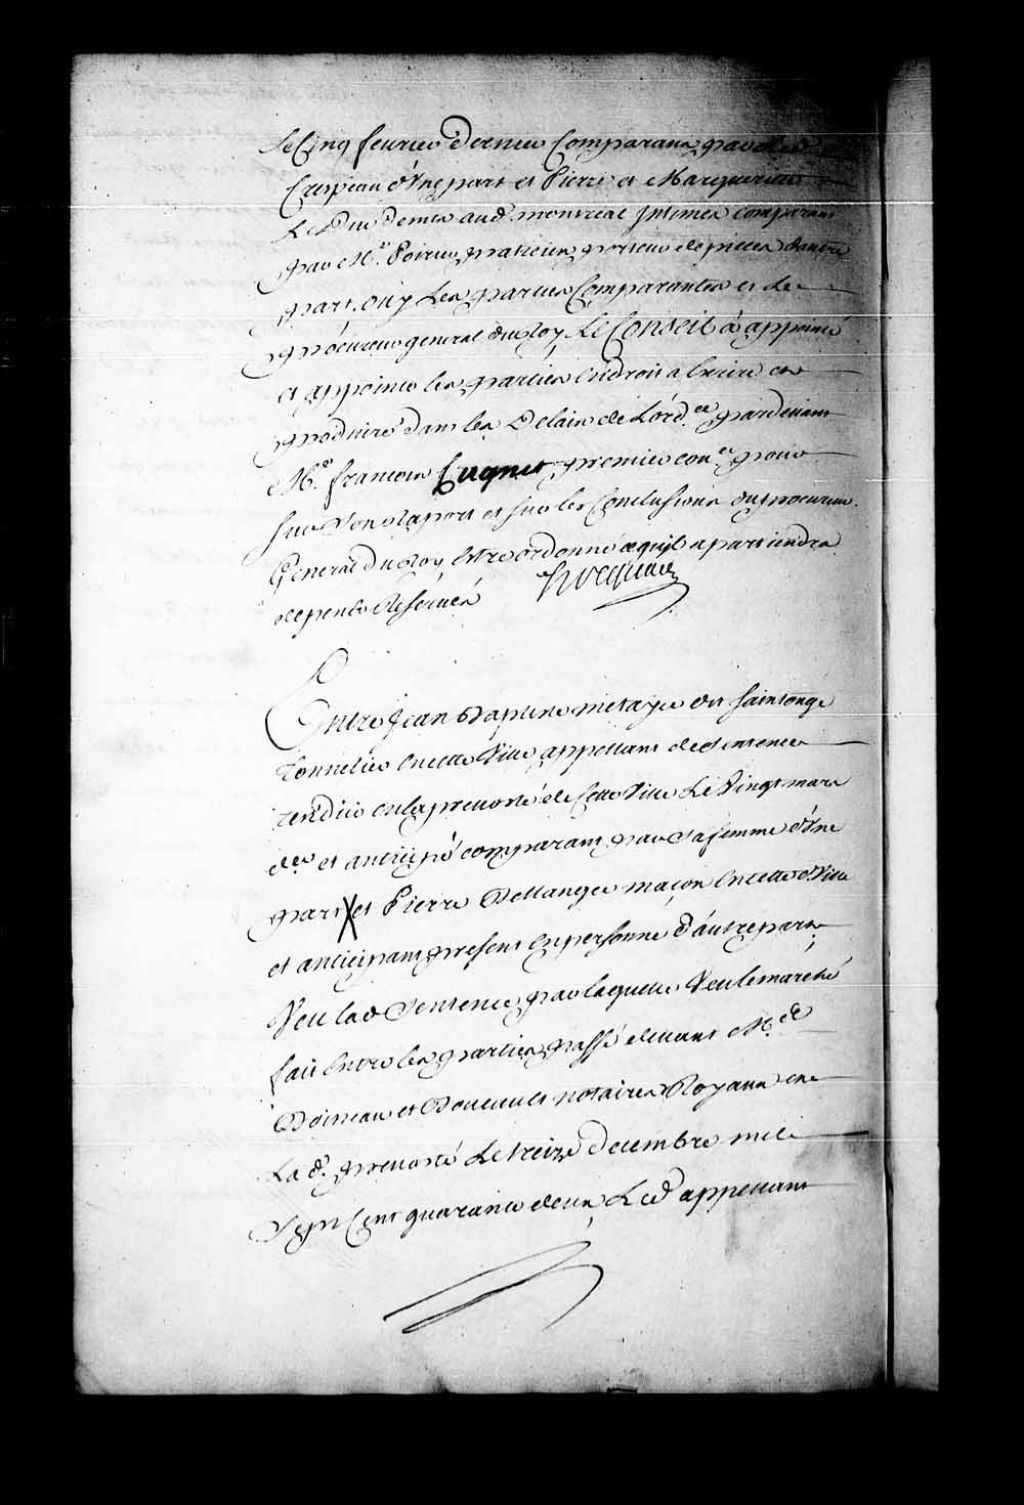 le Cinq feurier dernier Comparans par led.
Crespieau d'Une part et Pierre et Marguerite
Le Duc demt aud. montreal Intimés comparans
par Mr. Poirier praticien porteur de pieces d'autre
part. ouy Les parties Comparantes et Le
procureur general du Roy Le Conseil à appointé
et appointe les parties En droit a Ecrire et
produire dans les Delais de L'ord.ce pardevant
Me. francois Cugnet premier con.er pour
sur Son Raport et sur les Conclusions du procureur
General du Roy Estre ordonné ce qu'il apartiendra
depends Reservés Hocquart

Entre Jean Baptiste metayer dit saintonge
Tonnelier En cette Ville appellant de Sentence
rendüe en la prevosté de Cette Ville Le Vingt mars
d.er et anticipé comparant par Sa femme d'Une
part X et Pierre Bellanger maçon En cette d. Ville
et anticipant present En personne d'autre part;
Veu lad. Sentence par laquelle Veu le marché
fait Entre les parties passé devant Me
Boineau et Doucement notaires Royaux en
La d. prevosté Le treize decembre mil
Sept Cent quarante deux, Led. appellant